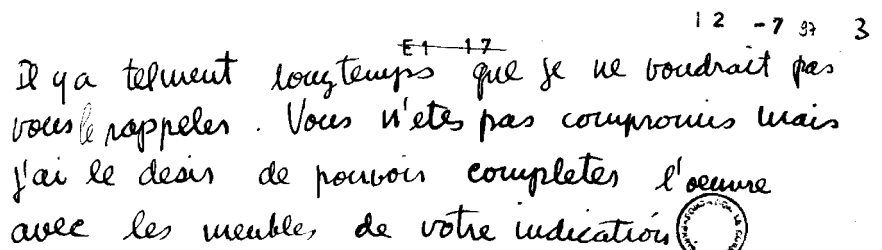 12 -7 97 3
E1 17
Il y a telment longtemps que je ne voudrait pas
vous le rappeler. Vous n'etes pas compromis mais
j'ai le desir de pouvoir completer l'oeuvre
avec les meubles de votre indication